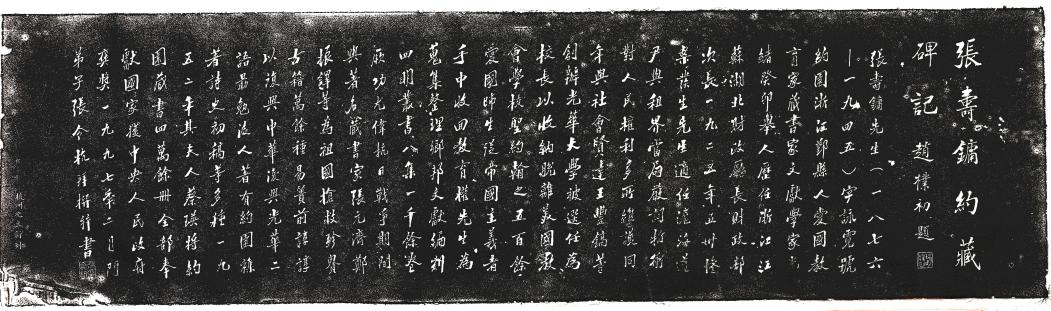 張壽鏞約藏
碑記 趙樸初題
張壽鏞先生（一八七六
—一九四五）字詠霓號
約園浙江鄞縣人愛國教
育家藏書家文獻學家光
緒癸卯舉人歷任浙江江
蘇湖北財政廳長財政部
次長一九二五年五卅慘
案發生先生適任滬海道
尹與租界當局嚴詞折衝
對人民權利多所維護同
年與社會賢達王豐鎬等
創辦光華大學被選任為
校長以收納脫離美國教
會學校聖約翰之五百餘
愛國師生從帝國主義者
手中收回教育權先生為
蒐集整理鄉邦文獻編刻
四明叢書八集一千餘卷
厥功尤偉抗日戰爭期間
與著名藏書家張元濟鄭
振鐸等為祖國搶救珍貴
古籍萬餘種易簀前諄諄
以復興中華復興光華二
語勗勉後人著有約園雜
著詩史初稿等多種一九
五二年其夫人蔡瑛將約
園藏書四萬餘冊全部奉
獻國家獲中央人民政府
褒獎一九九七年二月門
弟子張令杭謹撰并書